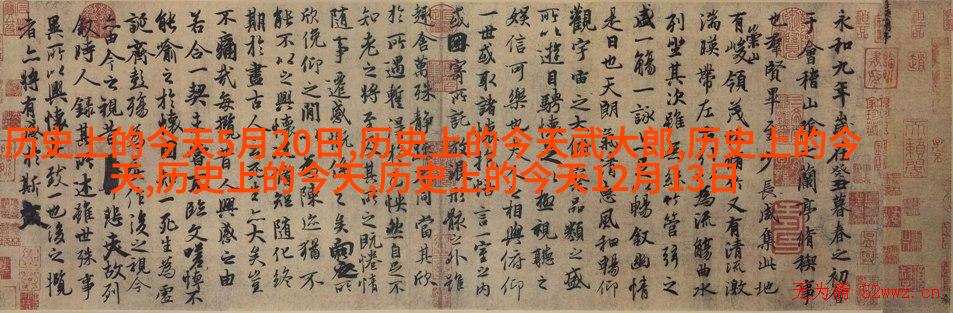 历史上的今天5月20日,历史上的今天武大郎,历史上的今
天,历史上的今天,历史上的今天12月13日
永和九年歲在癸丑暮春之初會
于會稽山陰之蘭亭脩稧事
也羣賢畢至少長咸集此地
有崇山峻領茂林脩竹又有清流激
湍暎帶左右引以為流觴曲水
列坐其次雖無絲竹管弦之
盛一觴一詠亦足以暢敘幽情
是日也天朗氣清惠風和暢仰
觀宇宙之大俯察品類之盛
所以遊目騁懷足以極視聽之
娛信可樂也夫人之相與俯仰
一世或取諸懷抱悟言一室之內
或因寄所託放浪形骸之外雖
趣舍萬殊靜躁不同當其欣
於所遇暫得於己怏然自足不
知老之將至及其所之既惓情
隨事遷感慨係之矣向之所
欣俛仰之閒以為陳迹猶不
能不以之興懷況脩短隨化終
期於盡古人云死生亦大矣豈
不痛哉每攬昔人興感之由
若合一契未嘗不臨文嗟悼不
能喻之於懷固知一死生為虛
誕齊彭殤為妄作後之視今
亦由今之視昔悲夫故列
敘時人錄其所述雖世殊事
異所以興懷其致一也後之攬
者亦將有感於斯文
52wwz.cn